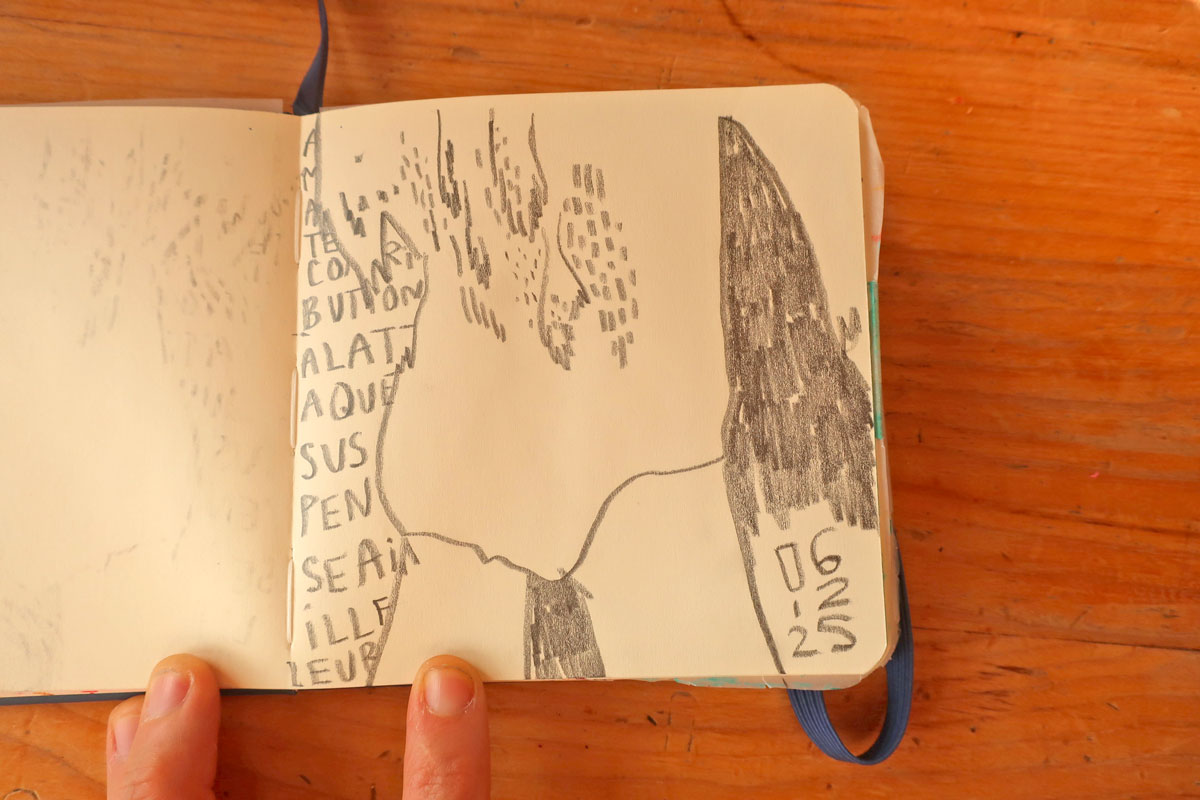 A
M
A
TE
CONTRI
BUTION
ALATT
AQUE
SUS
PEN
SEAi
iLLE
LEUR
06
-2
25